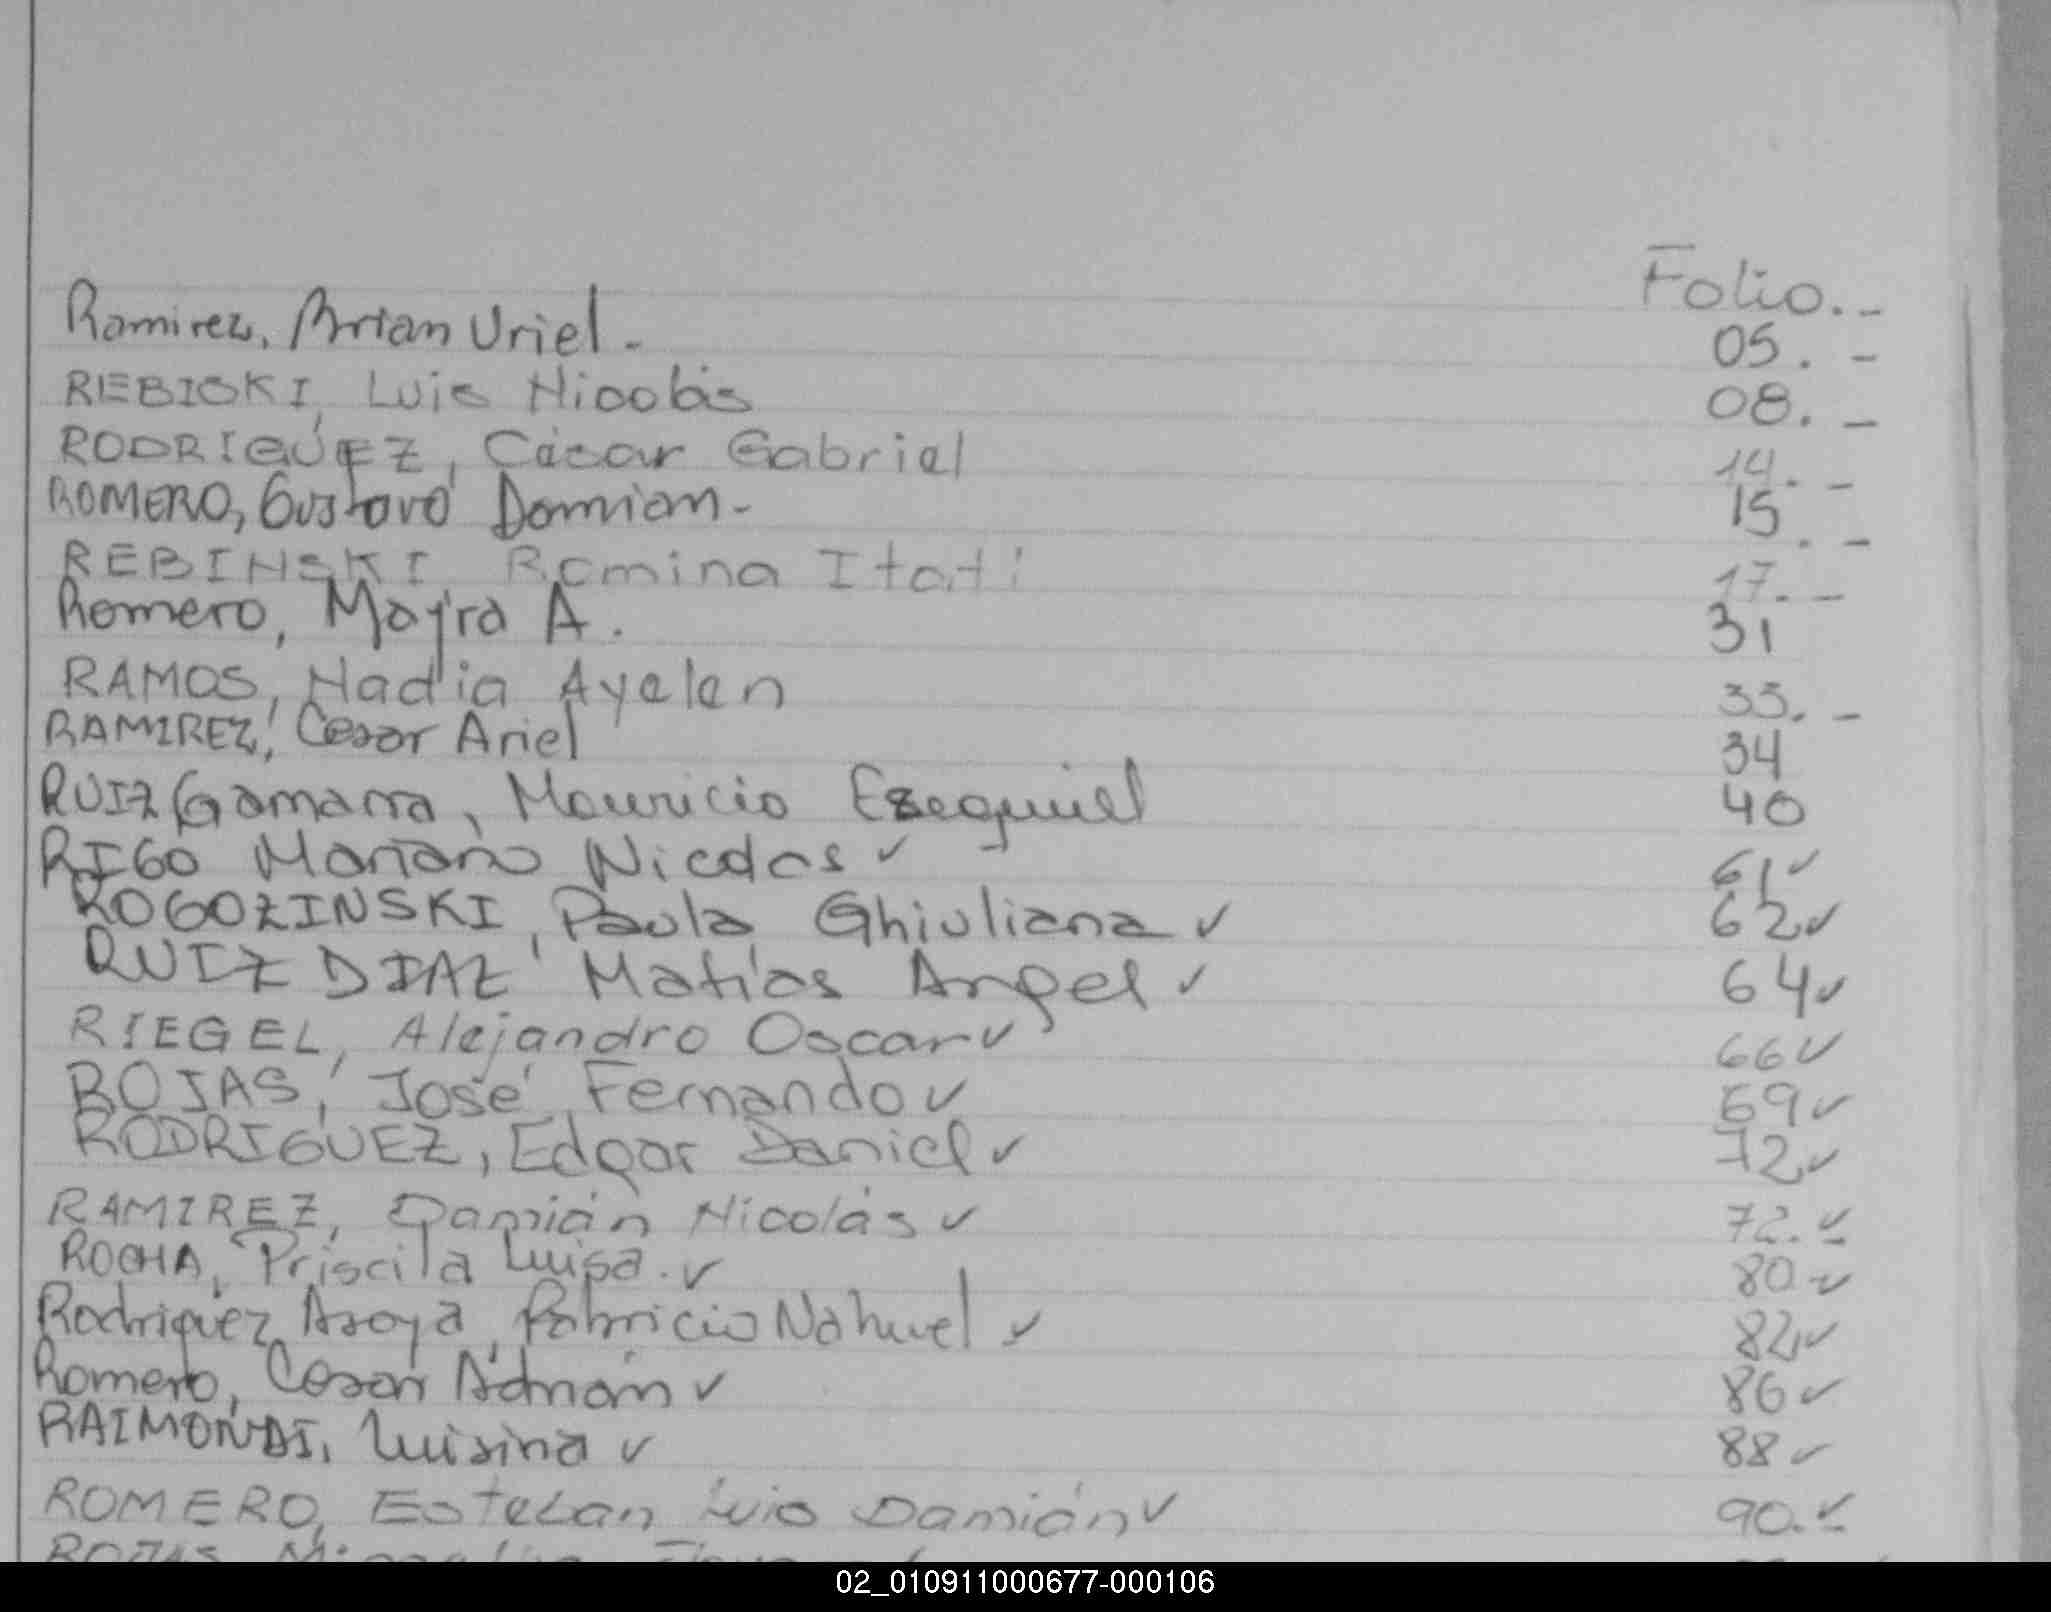 Folio._
Ramirez, Brian Uriel. 05._
REBISKI, Luis Nicolás 08._
RODRIGUEZ, César Gabriel 14._
ROMERO, Gustavo Damian. 15._
REBINSKI Romina Itatí 17._
Romero, Mayra A. 31
RAMOS, Nadia Ayelen 33._
RAMIREZ, Cesar Ariel 34
RUIZ Gamarra, Mauricio Ezequiel 40
RIGO Mariano Nicolas ✓ 61✓
ROGOZINSKI, Paula Ghiuliana ✓ 62✓
RUIZ DIAZ Matías Angel ✓ 64✓
RIEGEL, Alejandro Oscar✓ 66✓
ROJAS, José Fernando✓ 69✓
RODRIGUEZ, Edgar Daniel✓ 72✓
RAMIREZ, Damián Nicolás ✓ 72.✓
ROCHA, Priscila Luisa. ✓ 80.✓
Rodriguez Fabricio Nahuel ✓ 82✓
Romero, Cesar Adrián ✓ 86✓
RAIMONDI, Luisina ✓ 88✓
ROMERO, Esteban Luis Damián✓ 90.✓
ROJAS